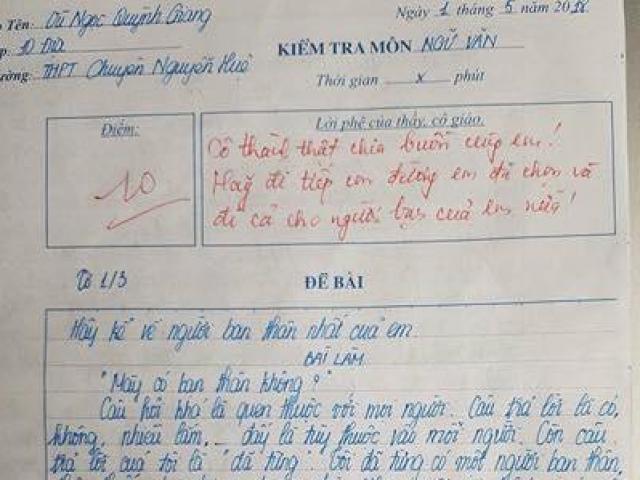 Tên: Vũ Ngọc Quỳnh Giang
Ngày 1 tháng 5 năm 2018
10 Địa
KIỂM TRA MÔN NGỮ VĂN
ường: THPT Chuyên Nguyễn Huệ
Thời gian x phút
Điểm:
Lời phê của thầy, cô giáo.
10
Cô thành thật chia buồn cùng em!
Hãy đi tiếp con đường em đã chọn và
đi cả cho người bạn của em nữa!
Tờ 1/3
ĐỀ BÀI
Hãy kể về người bạn thân nhất của em.
BÀI LÀM
"Mày có bạn thân không?"
Câu hỏi khá là quen thuộc với mọi người. Câu trả lời là có,
không, nhiều lắm,... đấy là tùy thuộc vào mỗi người. Còn câu
trả lời của tôi là "đã từng". Tôi đã từng có một người bạn thân,